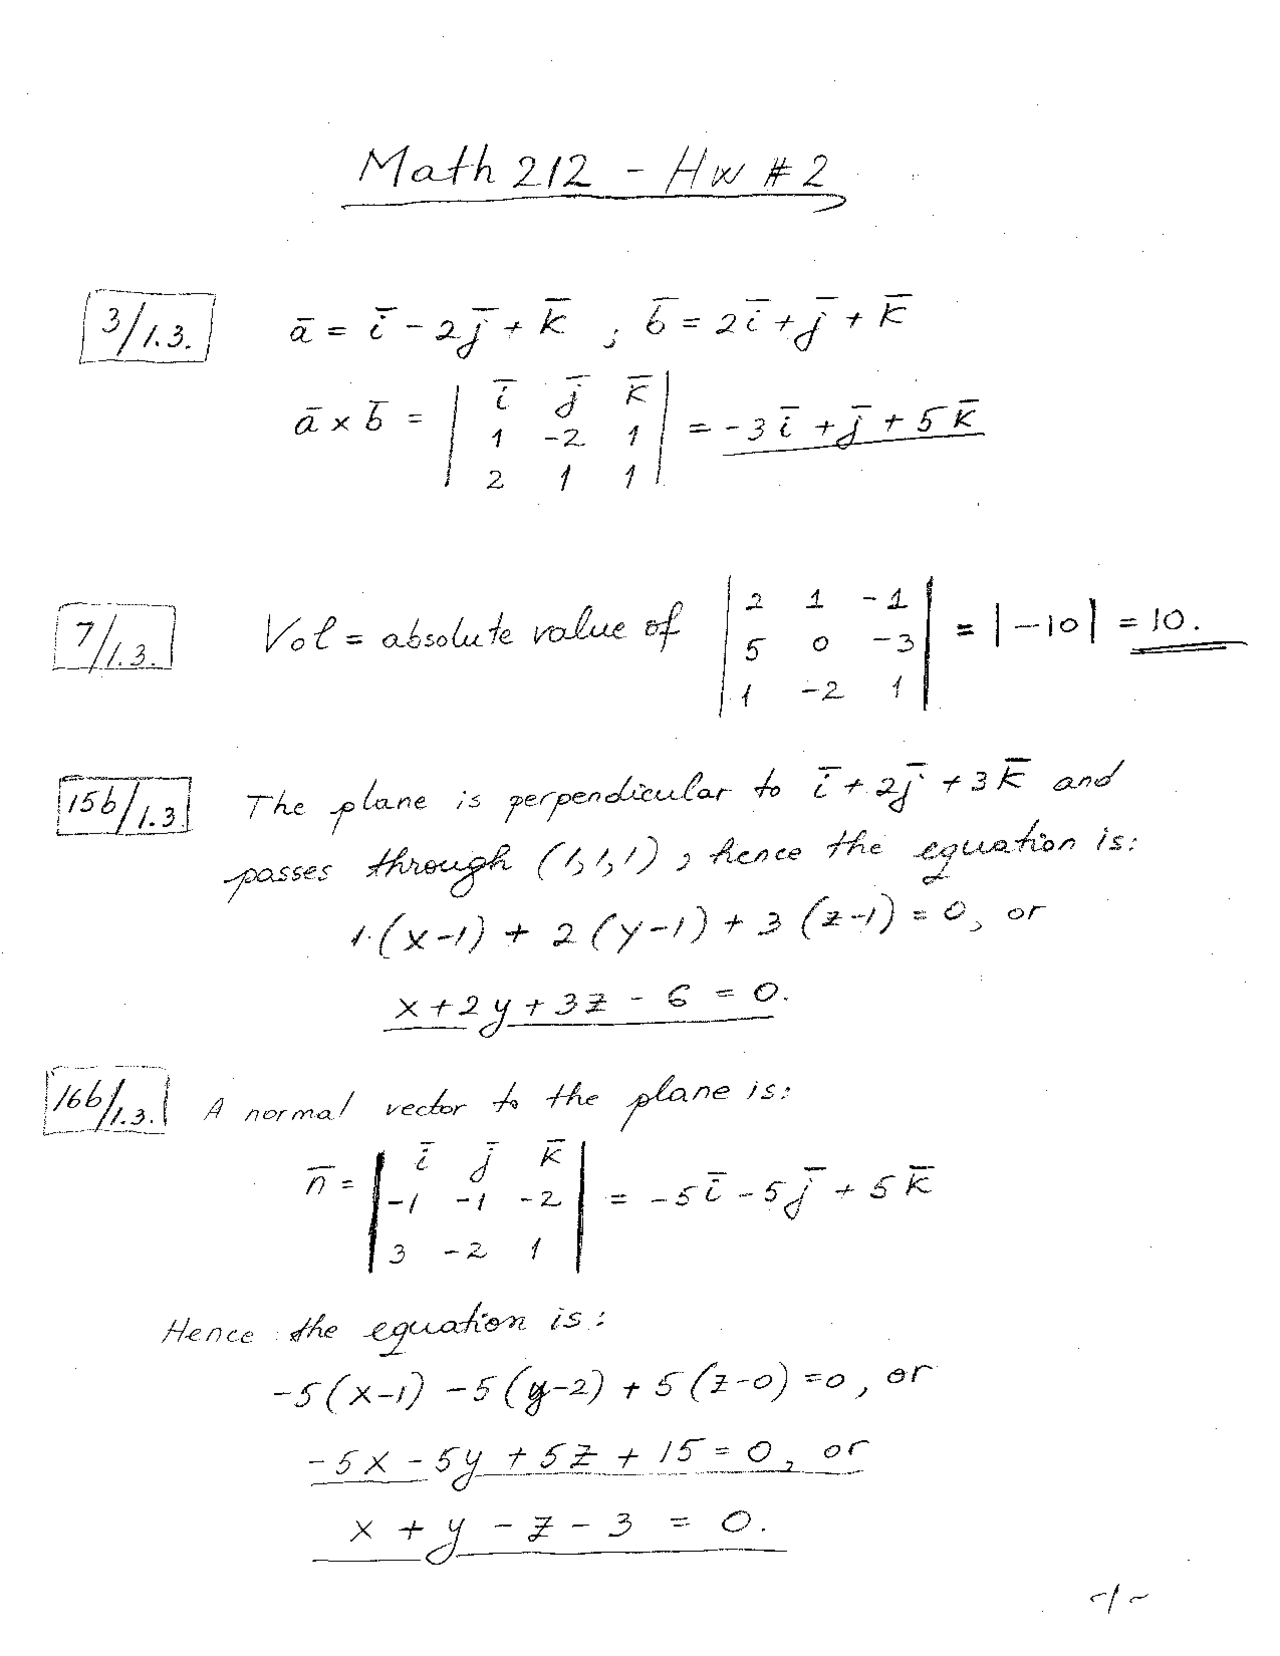 Math 212 - Hw # 2
3/1.3. a̅ = i̅ - 2j̅ + k̅ , b̅ = 2i̅ + j̅ + k̅
a̅ x b̅ = | i̅ j̅ k̅ | = -3i̅ + j̅ + 5k̅
1 -2 1
2 1 1
7/1.3. Vol = absolute value of | 2 1 -1 | = |-10| = 10.
5 0 -3
1 -2 1
15b/1.3 The plane is perpendicular to i̅ + 2j̅ + 3k̅ and
passes through (1,1,1), hence the equation is:
1·(x-1) + 2(y-1) + 3(z-1) = 0, or
x + 2y + 3z - 6 = 0.
16b/1.3. A normal vector to the plane is:
n̅ = | i̅ j̅ k̅ | = -5i̅ - 5j̅ + 5k̅
-1 -1 -2
3 -2 1
Hence the equation is:
-5(x-1) -5(y-2) + 5(z-0) = 0, or
-5x - 5y + 5z + 15 = 0, or
x + y - z - 3 = 0.
-1-